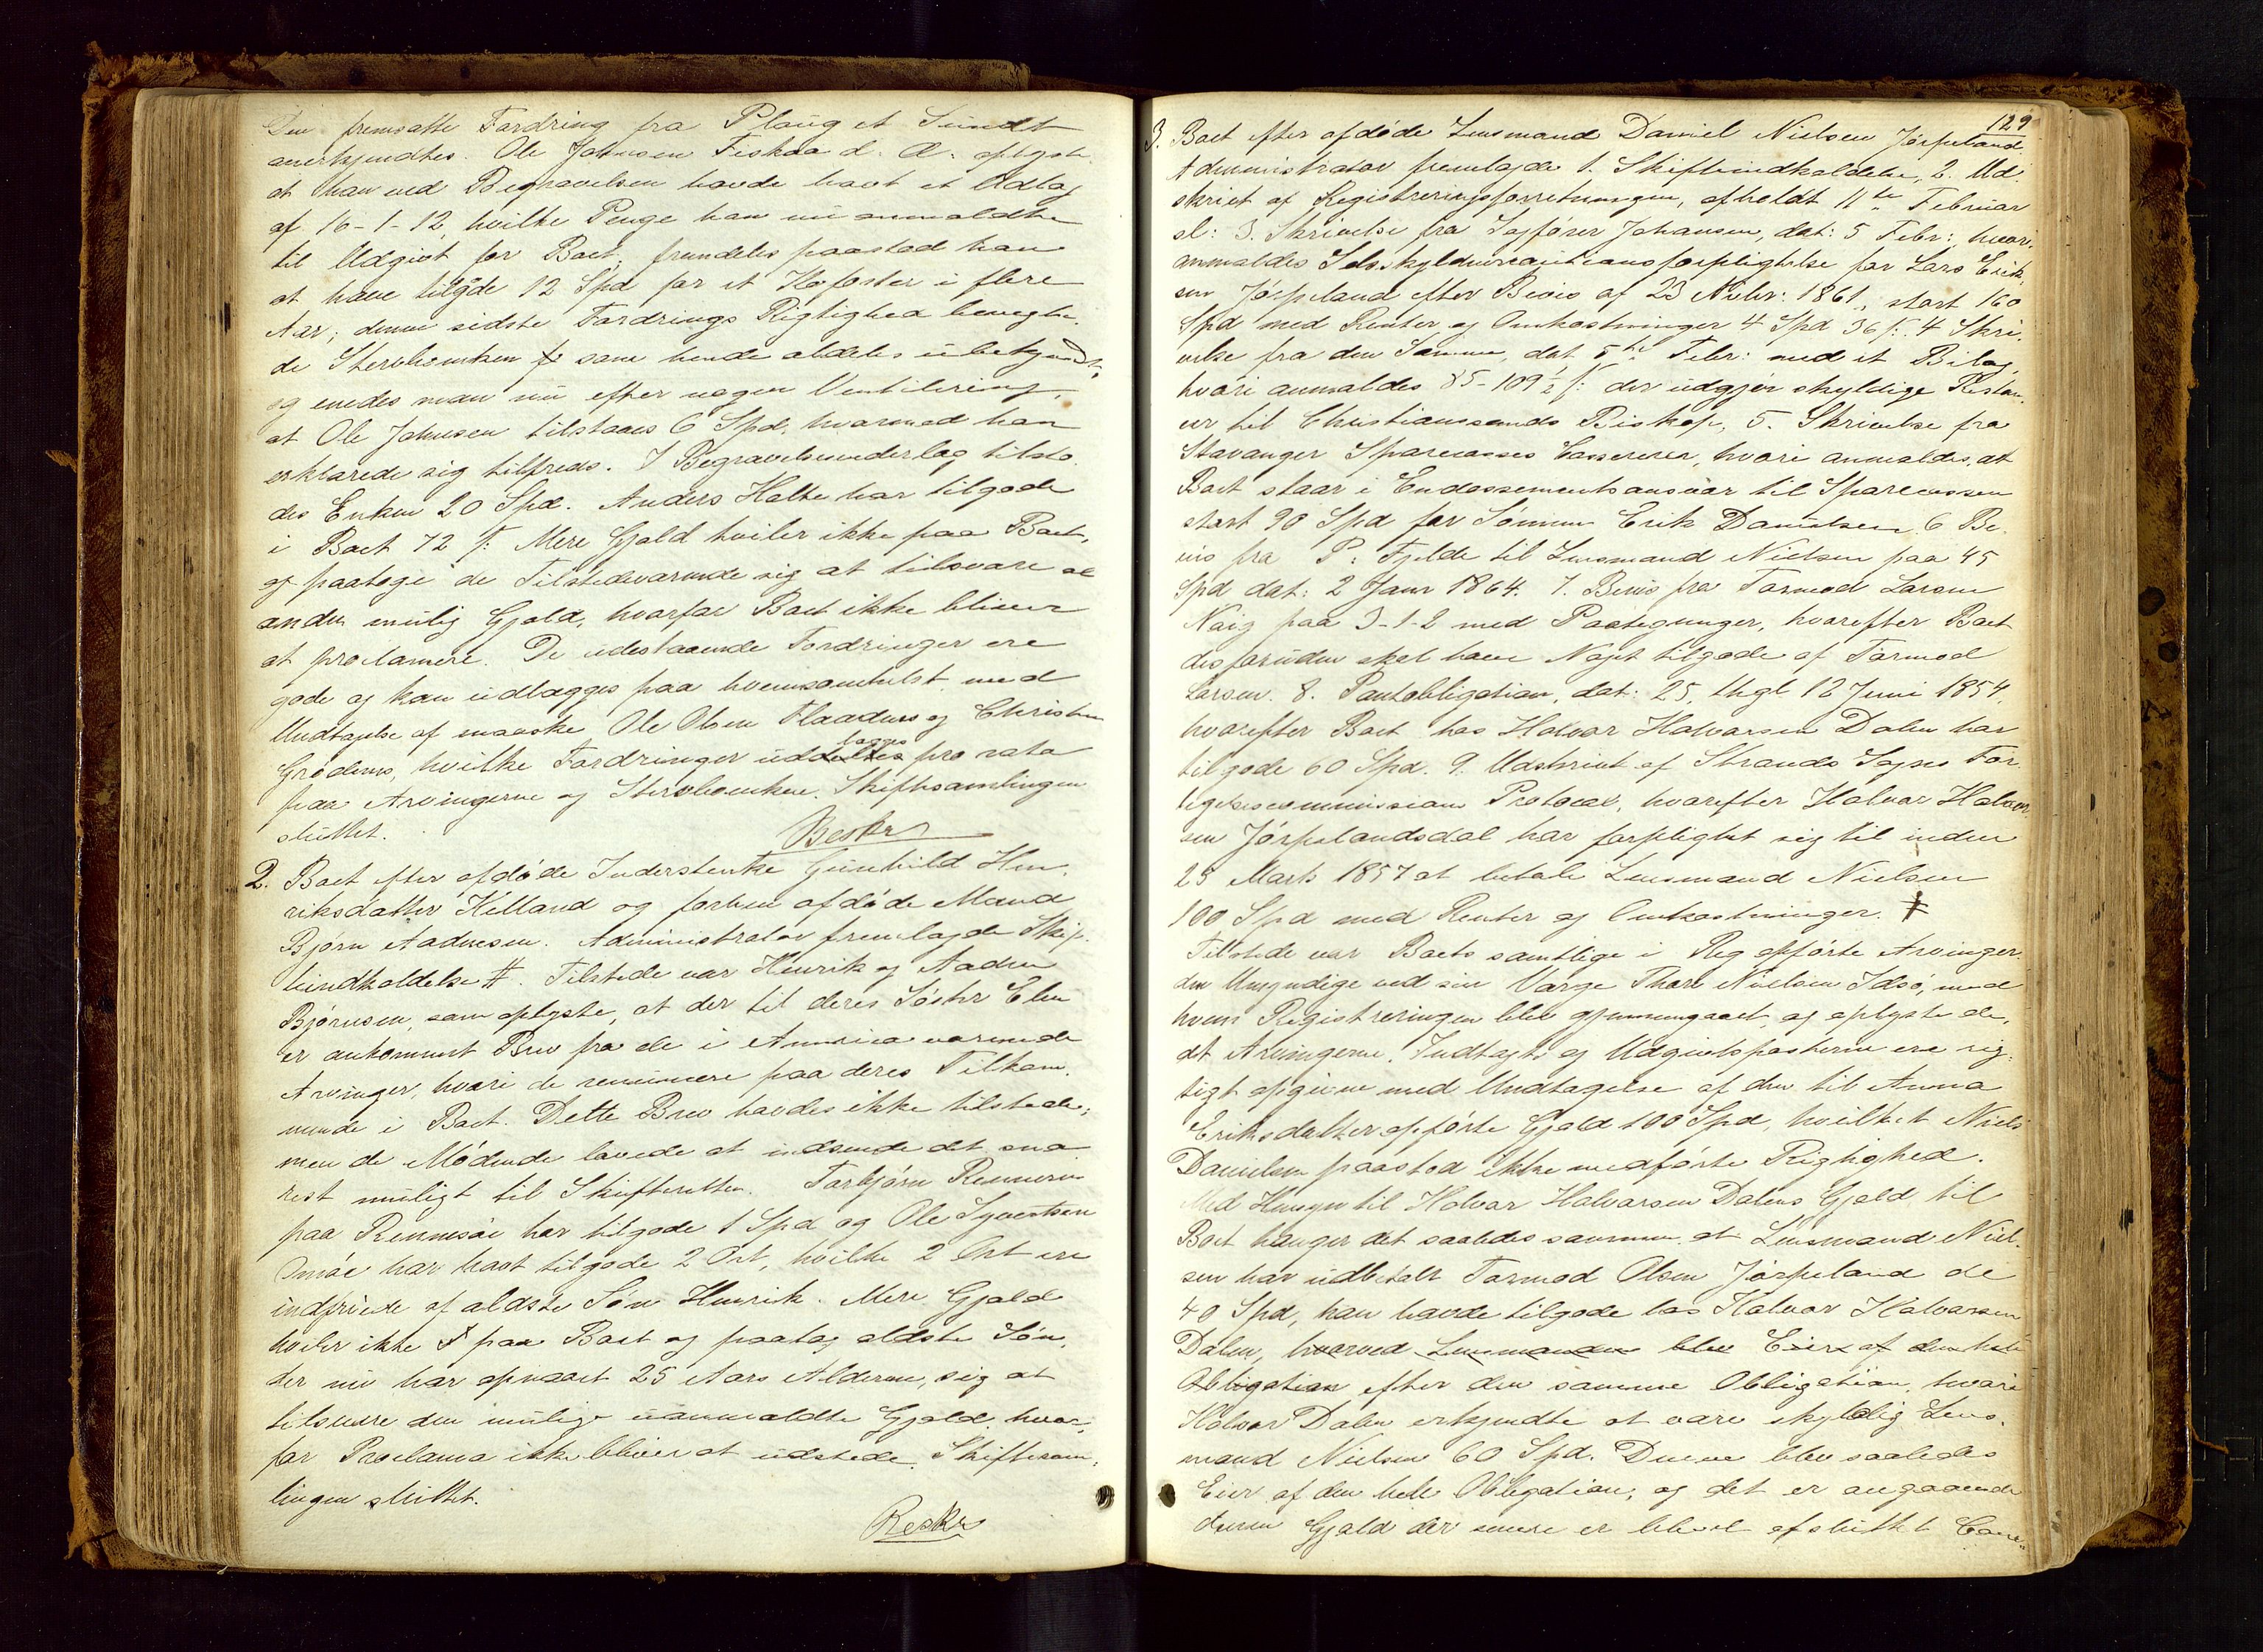 Den fremsatte Fordring fra Ploug et Sundt
anerkjendtes. Ole Johnsen Fiskaa d. Æ. oplyste
at han ved Begravelsen havde havt et Udlæg
af 16-1-12, hvilke Penge han nu anmeldte
til Udgivt for Boet; fremdeles paastod han
at have tilgode 12 Spd for et Kofoster i flere
Aar; denne sidste Fordrings Rigtighed benegte-
de Sterboenken som hende aldeles ubekjendt,
og enedes man nu efter nogen Ventilering,
at Ole Johnsen tilstaaes 6 Spd, hvormed han
erklærede sig tilfreds. I Begravelsesudlæg tilsto-
des Enken 20 Spd. Anders Holte har tilgode
i Boet 72 ſ: Mere Gjæld hviler ikke paa Boet,
og paatoge de Tilstedeværende sig at tilsvare al
anden mulig Gjæld, hvorfor Boet ikke bliver
at proclamere. De udestaaende Fordringer ere
gode og kan udlægges paa hvemsomhelst med
Undtagelse af maaske Ole Olsen Aaadnes og Christen
Grødems, hvilke Fordringer udlægges pro rata
paa Arvingerne og Sterboenken. Skiftesamlingen
sluttet.
2. Boet efter afdøde Inderstenke Gunhild Hen-
riksdatter Killand og forhen afdøde Mand
Bjørn Aadnesen. Administrator fremlagde Skif-
teindkaldelse #. Tilstede var Henrik og Aadne
Bjørnsen, som oplyste, at der til deres Søster Elen
er ankommet Brev fra de i America værende
Arvinger, hvori de renuncere paa deres Tilkom-
mende i Boet. Dette Brev havdes ikke tilstede;
men de Mødende lovede at indsende det sna-
rest muligt til Skifteretten. Torbjørn Rennesøen
paa Rennesøe har tilgode 1 Spd og Ole Syvertsen
Omøe har havt tilgode 2 Ort, hvilke 2 Ort ere
indfriede af ældste Søn Henrik. Mere Gjæld
hviler ikke paa Boet og paatog ældste Søn,
der nu har opnaaet 25 Aars Alderen, sig at
tilsvare den mulige uanmeldte Gjæld, hvor-
for Proclama ikke bliver at udstede. Skiftesam-
lingen sluttet.
129
3. Boet efter afdøde Lensmand Daniel Nielsen Jørpeland
Administrator fremlagde 1. Skifteindkaldelse, 2. Ud-
skrivt af Registreringsforretningen, afholdt 11te Februar
sl: 3. Skrivelse fra Sagfører Johansen, dat: 5 Febr:, hvori
anmeldes Selvskyldnercautionsforpligtelse for Lars Erik-
sen Jørpeland efter Bevis af 23 Novbr: 1861, stort 160
Spd med Renter og Omkostninger 4 Spd 36 ſ: 4 Skri-
velse fra den Samme, dat 5te Febr: med et Bilag,
hvori anmeldes 85-109½ ſ: der udgjør skyldige Restan-
cer til Christianssands Biskop, 5. Skrivelse fra
Stavanger Sparecasses Casserer, hvori anmeldes, at
Boet staar i Endossementsansvar til Sparecassen
stort 90 Spd for Sønnen Erik Danielsen 6 Be-
vis fra P: Fjelde til Lensmand Nielsen paa 45
Spd dat: 2 Janr 1864. 7. Bevis fra Tormod Larsen
Nåig paa 3-1-2 med Paategninger, hvorefter Boet
desforuden skal have Noget tilgode af Tormod
Larsen. 8. Pantobligation, dat: 25, thgl 12 Juni 1854,
hvorefter Boet hos Halvor Halvorsen Dalen har
tilgode 60 Spd. 9. Udskrivt af Strands Sogns For-
ligelsescommissions Protocol, hvorefter Halvor Halvor-
sen Jørpelandsdal har forpligtet sig til inden
25 Marts 1857 at betale Lensmand Nielsen
100 Spd med Renter og Omkostninger. #
Tilstede var Boets samtlige i Reg opførte Arvinger
den Umyndige ved sin Værge Thore Nielsen Idsø, med
hvem Registreringen blev gjennemgaaet, og oplyste de,
at Arvingerne. Indtægts og Udgivtsposterne ere rig-
tigt opgivne med Undtagelse af den til Anna
Eriksdatter opførte Gjæld 100 Spd, hvilket Niels
Danielsen paastod ikke medførte Rigtighed.
Med Hensyn til Halvor Halvorsen Dalens Gjæld til
Boet hænger det saaledes sammen at Lensmand Niel-
sen har udbetalt Tormod Olsen Jørpeland de
40 Spd, han havde tilgode hos Halvor Halvorsen
Dalen, hvorved Lensmanden blev Eier af den hele
Obligation efter den samme Obligation, hvori
Halvor Dalen erkjendte at være skyldig Lens-
mand Nielsen 60 Spd. Denne blev saaledes
Eier af den hele Obligation, og det er angaaende
denne Gjæld der senere er blevet afsluttet